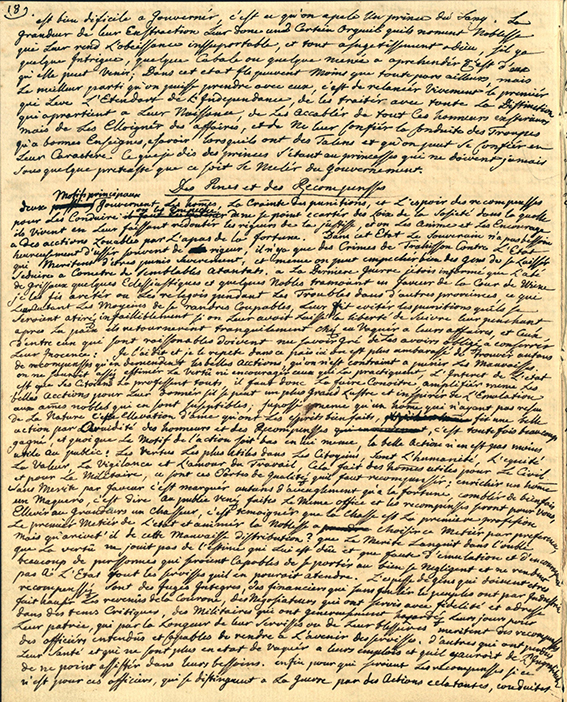 18)
est bien dificile a Gouverner, c'est ce qu'on apele Un prince du Sang. La
Granduer de leur Extraction Leur done und Certain Orgueil quils noment Noblesse
qui Leur rend L'obeissance inssuportable, et tout assugetissement odieu, s'il ya
quelque Intrigue, quelque Cabale ou quelque menée a aprehender c'est d'eux
qu'elle peut Venir; Dans cet etat ils peuvent Moins que tout part ailleurs, mais
Le milleur parti qu'on puisse prendre avec eux, c'est de relanser Vivement le premier
qui Leve L'Etendart de L'Independance, de les traiter avec toute La Distinction
qui apartient a Leur Naissance, de Les accabler de tout Ces honneurs exsterieurs
mais de Les Elloigner des affaires, et de Ne leur Confier la Conduite des Troupes
qu'a bonnes Enseignes, Savoir, lorsquils ont des Talens et qu'on peut se Confier en
Leur Caractere. Ce que je dis des princes S'etant au princesses qui ne doivent jamais
Sous quelque pretexste que ce soit se Meler du Gouvernement.
Des Penes et des Recompensses
Motifs principaux
deux Gouvernent Les homes, La Crainte des punitions, et L'espoir des recompensses
pour les Conduire et dans se point ecarter des Loix de la Sosieté dans la quelle
ils Vivent en Leur faissant redouter les rigeurs de la justisse, et on Les anime et Les Encourage
a Des actions Louables par L'apas de la fortune. Dans cet Etat Le Souverain n'a pas bessoin
heureussement d'usser souvant de rigeur. Il n'y que des Crimes de Trahisson Contre L'Etat
qui Meritent d'etre punis severement, et meme on peut empecher bien des Gens de se Laisser
Seduire a Cometre de semblables Atantats, a La Derniere Guerre jetois informé que L'abé
de Grissaux quelques Eclessiastiques et quelques Nobles tramoient en faveur de La Cour de Viene
je les fis areter on Les relegua pendant Les Troubles dans d'autres provinces, ce qui
Leur otant Les Moyens de se randre Coupables, Leur fit eviter les punitions quils se
Seroient atiré infailliblement si on Leur avoit Laissé la liberté de suivre Leur penchant
apres La paix ils retournerent tranquilement chez eux Vaquer a leurs affaires, et Ceux
d'entre eux que sont raissonables doivent me savoir gré de Les avoirs obligé a Conserver
Leur Inocence. Je l'ai dit et je le repete dans ce pais ici on est plus embarassé de Trouver autant
de recompensses qu'on demande de belles Actions, qu'on n'est contraint a punir Les Mauvaises
on ne sauroit assé estimer La Vertû ni encouragé ceux que la practiquent, L'Interest de L'Etat
est que Les Citoiens La professent touts, il faut donc La faire Conoitre, amplifier meme Les
belles Actions pour Leur donner s'il se peut un plus Grand Lustre et inspirer de L'Emulation
aux ames nobles qui en sont susseptibles, suposse meme qu'un home n'ayant pas resu
de La Nature cette Ellevation d'ame qu'ont Les esprits bien fait, fit une belle
action par L'avidité des honneurs et des Recompensses, c'est toute fois beaucoup
gagné, et quoique Le Motif de L'action soit bas en lui meme, la belle action n'en est pas moins
utile au publique. Les Vertus Les plus utiles dans Les Citoyens, sont L'humanité, L'equité
La Valeur, La Vigilance et L'amour du Travail, Cela fait des homes utiles pour le Civil
et pour Le Militaire, ce sont ces sortes de qualitéz quil faut recompensser; enrichir un home
sans Merite par faveur c'est marquer autant d'aveuglement que la fortune, combler de bienfais
un Maquero, c'est dire au publiq venez faites Le Meme ofice et les recompensses seront pour vous,
Ellever au grandeurs un chasseur, c'est temoigner que la chasse est La premiere profession
Le premier Metier de L'etat et animer la Noblesse a choisir ce Metier par preference.
Mais qu'arivet'il de cette Mauvaise distribution? que Le Merite Languit dans L'oubli
que La vertû ne jouit pas de L'estime qui Lui est düe et que faute d'emulation et d'encouragement
beaucoup de personnes qui seroient Capables de se porter au bien se Negligent et ne rendent
pas a L'Etat tout les services qu'il en pouroit atendre. L'espesse de gens qui doivent etre
recompensses Sont des gens Inteires des finanssiers qui sans fouler le peuples ont par Industrie
fait hausser Les revenûs de la Courone, des Negotiateurs, qui ont servis avec fidelité et adresse
dans des tems Critiques, des Militaires qui ont genereusement hazardé Leurs jours pour
Leur patrie, qui par la Longeur de leur Servisse ou de Leur blessures meritent des recompensses
des officiers entendûs et Capables de rendre a L'avenir des servisses, d'autres qui ont perdus
Leur Santé et qui ne sont plus en etat de vaquer a Leurs emplois et quil y auroit de L'Ingratitude
de ne point assister dans Leurs bessoins. enfin pour qui seroient Les recompensses si ce
n'est pour ces officiers, qui se distinguent a La guerre par des Actions eclatantes, conduites